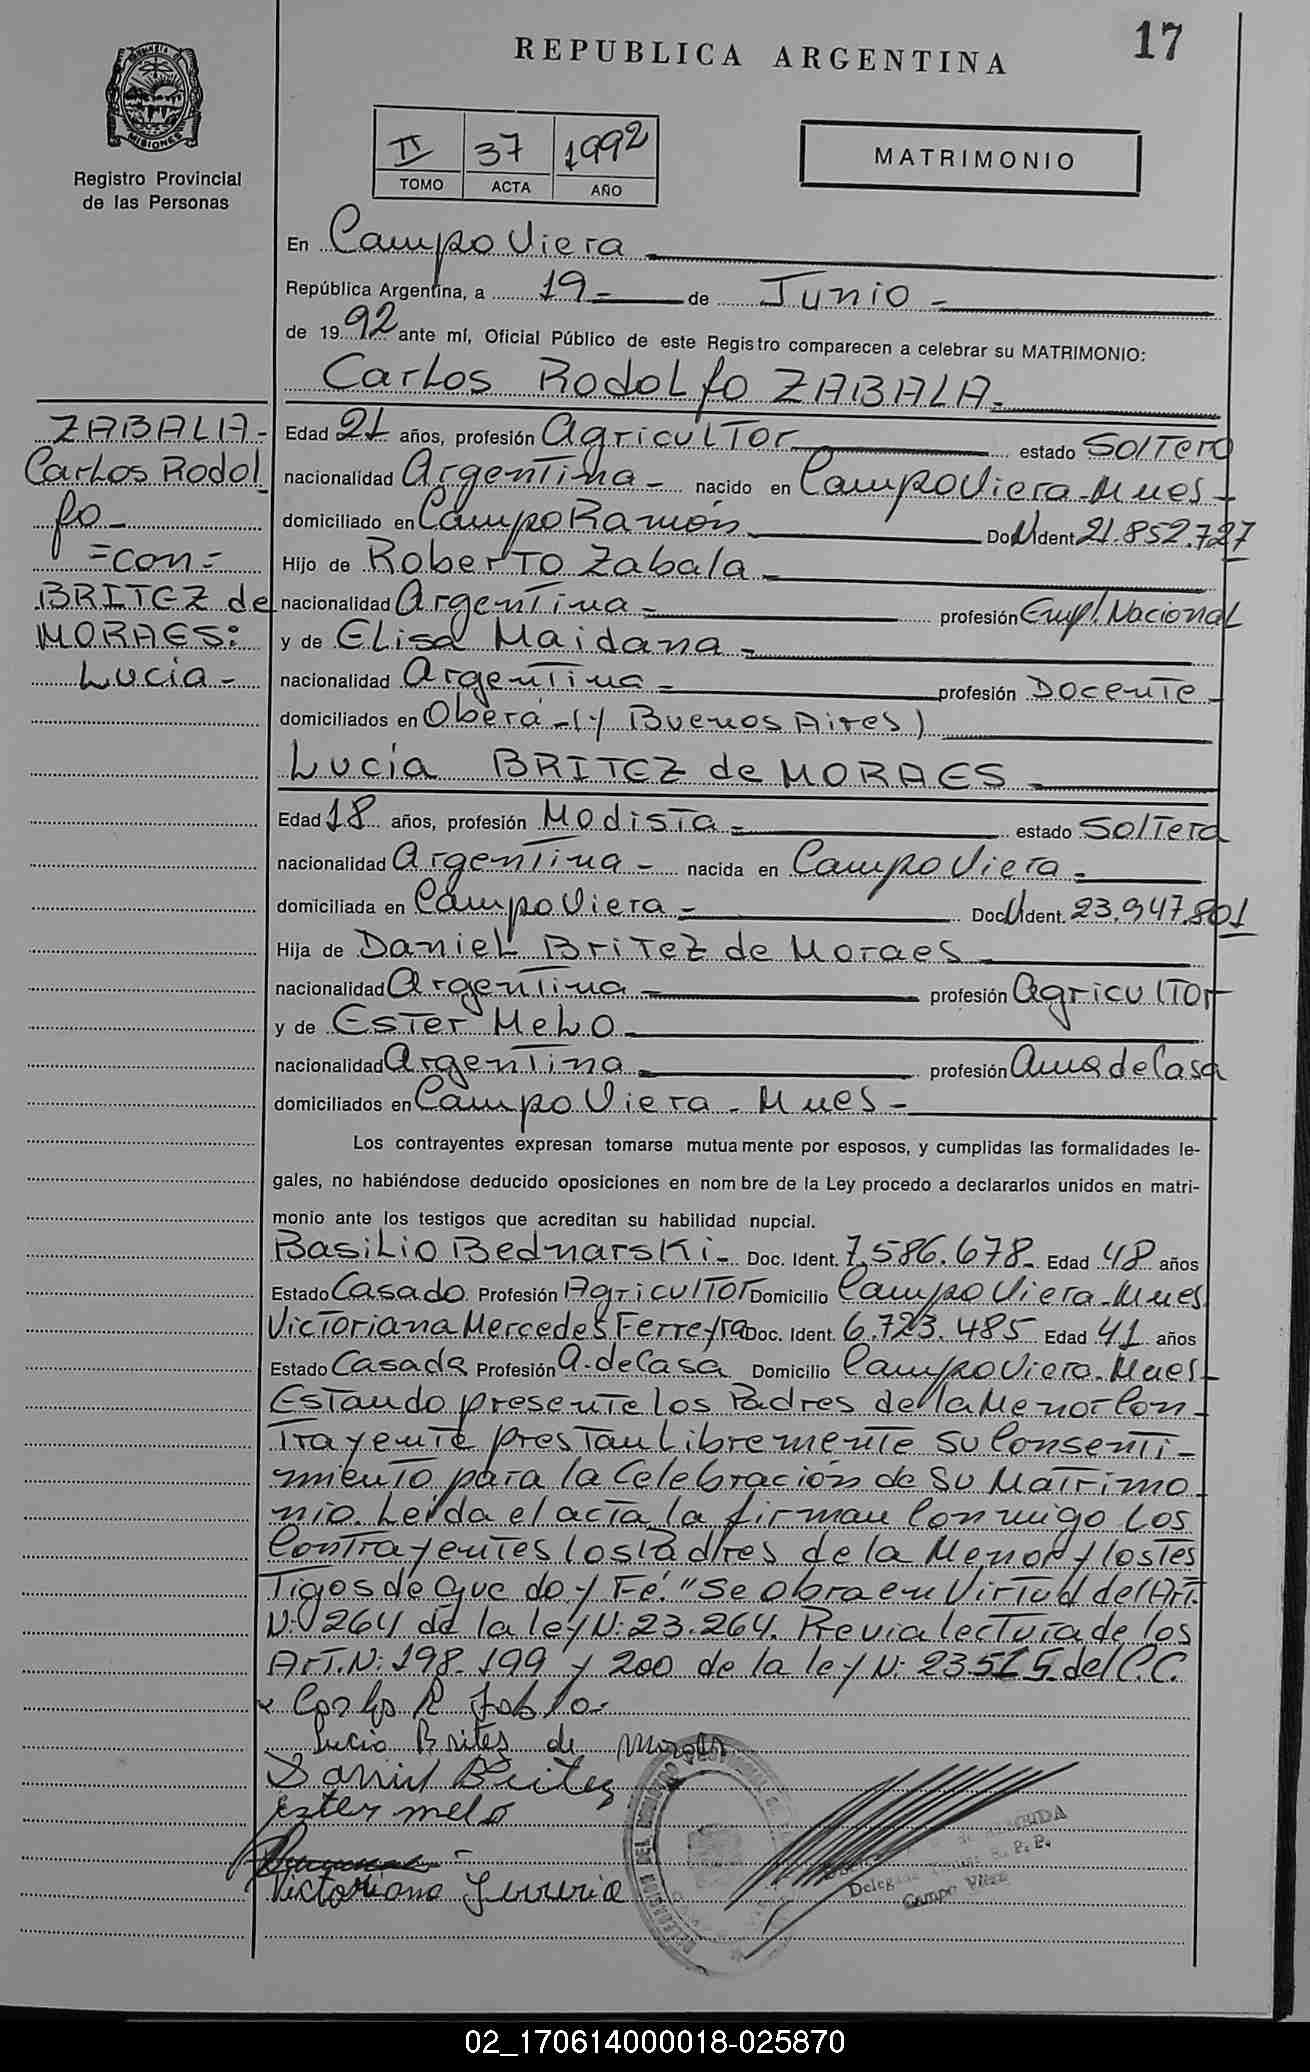 17
REPUBLICA ARGENTINA
MISIONES
Registro Provincial
de las Personas
II 37 1992
TOMO ACTA AÑO
MATRIMONIO
En Campo Viera
República Argentina, a 19- de Junio-
de 1992 ante mí, Oficial Público de este Registro comparecen a celebrar su MATRIMONIO:
Carlos Rodolfo ZABALA-
ZABALA-
Carlos Rodol
fo-
=con=
BRITEZ de
MORAES:
Lucía-
Edad 21 años, profesión Agricultor estado Soltero
nacionalidad Argentina- nacido en Campo Viera-Mnes-
domiciliado en Campo Ramón Doc. Ident. 21.852.727
Hijo de Roberto Zabala-
nacionalidad Argentina- profesión Empl. Nacional
y de Elisa Maidana-
nacionalidad Argentina- profesión Docente-
domiciliados en Oberá-(y Buenos Aires)
Lucía BRITEZ de MORAES-
Edad 18 años, profesión Modista- estado Soltera
nacionalidad Argentina- nacida en Campo Viera-
domiciliada en Campo Viera- Doc. Ident. 23.947.801
Hija de Daniel Britez de Moraes-
nacionalidad Argentina- profesión Agricultor
y de Ester Melo-
nacionalidad Argentina- profesión Ama de Casa
domiciliados en Campo Viera-Mnes-
Los contrayentes expresan tomarse mutuamente por esposos, y cumplidas las formalidades le-
gales, no habiéndose deducido oposiciones en nombre de la Ley procedo a declararlos unidos en matri-
monio ante los testigos que acreditan su habilidad nupcial.
Basilio Bednarski- Doc. Ident. 7.586.678- Edad 48 años
Estado Casado Profesión Agricultor Domicilio Campo Viera-Mnes
Victoriana Mercedes Ferreyra Doc. Ident. 6.723.485 Edad 41 años
Estado Casada Profesión A. de Casa Domicilio Campo Viera-Mnes-
Estando presente los Padres de la Menor Con-
trayente prestan Libremente su Consenti-
miento para la Celebración de su Matrimo
nio. Leída el acta la firman Conmigo los
Contrayentes los Padres de la Menor y los Tes
tigos de que doy Fé. "Se obra en Virtud del Art.
N: 264 de la ley N: 23.264. Previa lectura de los
Art. N: 198-199 y 200 de la ley N: 23.515 del C.C.
Lucia Brites de Moraes
Daniel Britez
Ester melo
Victoriana Ferreria
Campo Viera
02_170614000018-025870